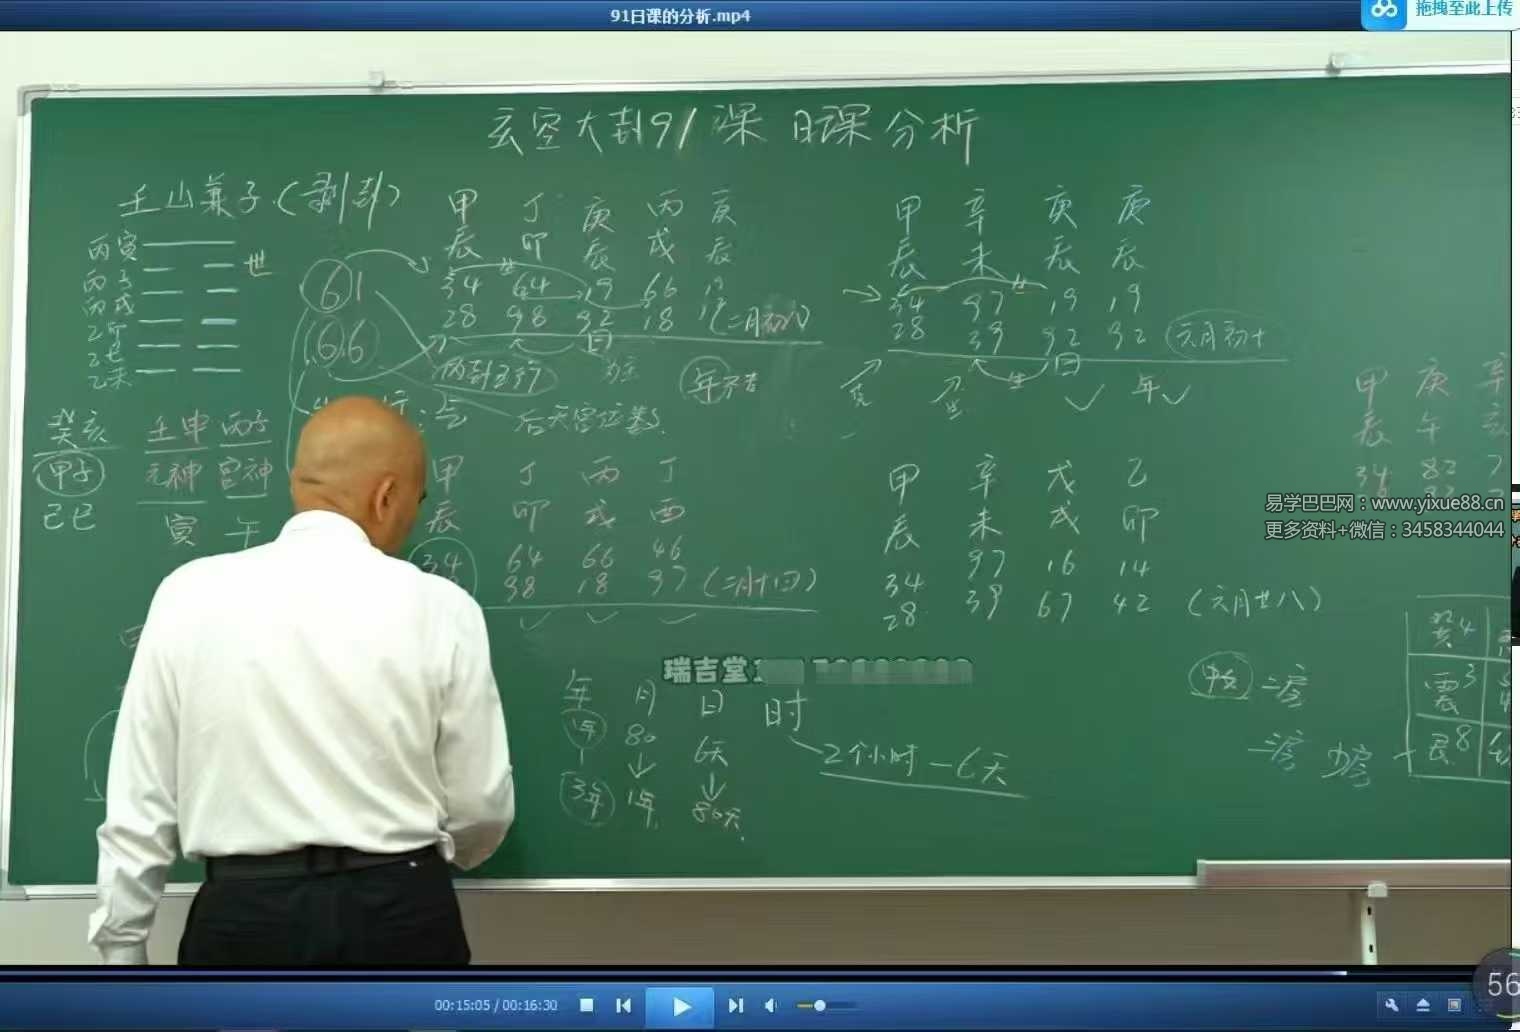 91日课的分析.mp4
拖拽至此上传
玄空大卦91课 日课分析
壬山兼子(剥卦)
丙寅
丙子
丙戌
乙卯
乙未
世
61
66
甲 丁 庚 丙 庚
辰 卯 辰 戌 辰
34 64 19 66 19
28 98 92 18
(二月初八)
两卦五行
为主
年不吉
后天宫位数
甲 辛 庚 庚
辰 未 辰 辰
34 97 19 19
28 39 92 92
(六月初十)
生
日
年
癸亥 壬申 丙子
甲子 元神 官神
己巳 寅 午
甲 丁 丙 丁
辰 卯 戌 酉
34 64 66 46
98 18 97 (二月十四)
甲 辛 戊 乙
辰 未 戌 卯
34 97 16 14
28 39 67 42
(六月廿八)
甲 庚 辛
辰 午 亥
34 82 7
易学巴巴网：www.yixue88.cn
更多资料+微信：3458344044
瑞吉堂
年 月 日 时
1年 80 6天
3年 1年 80天
2个小时－6天
4
震3
艮8
00:15:05 / 00:16:30
56